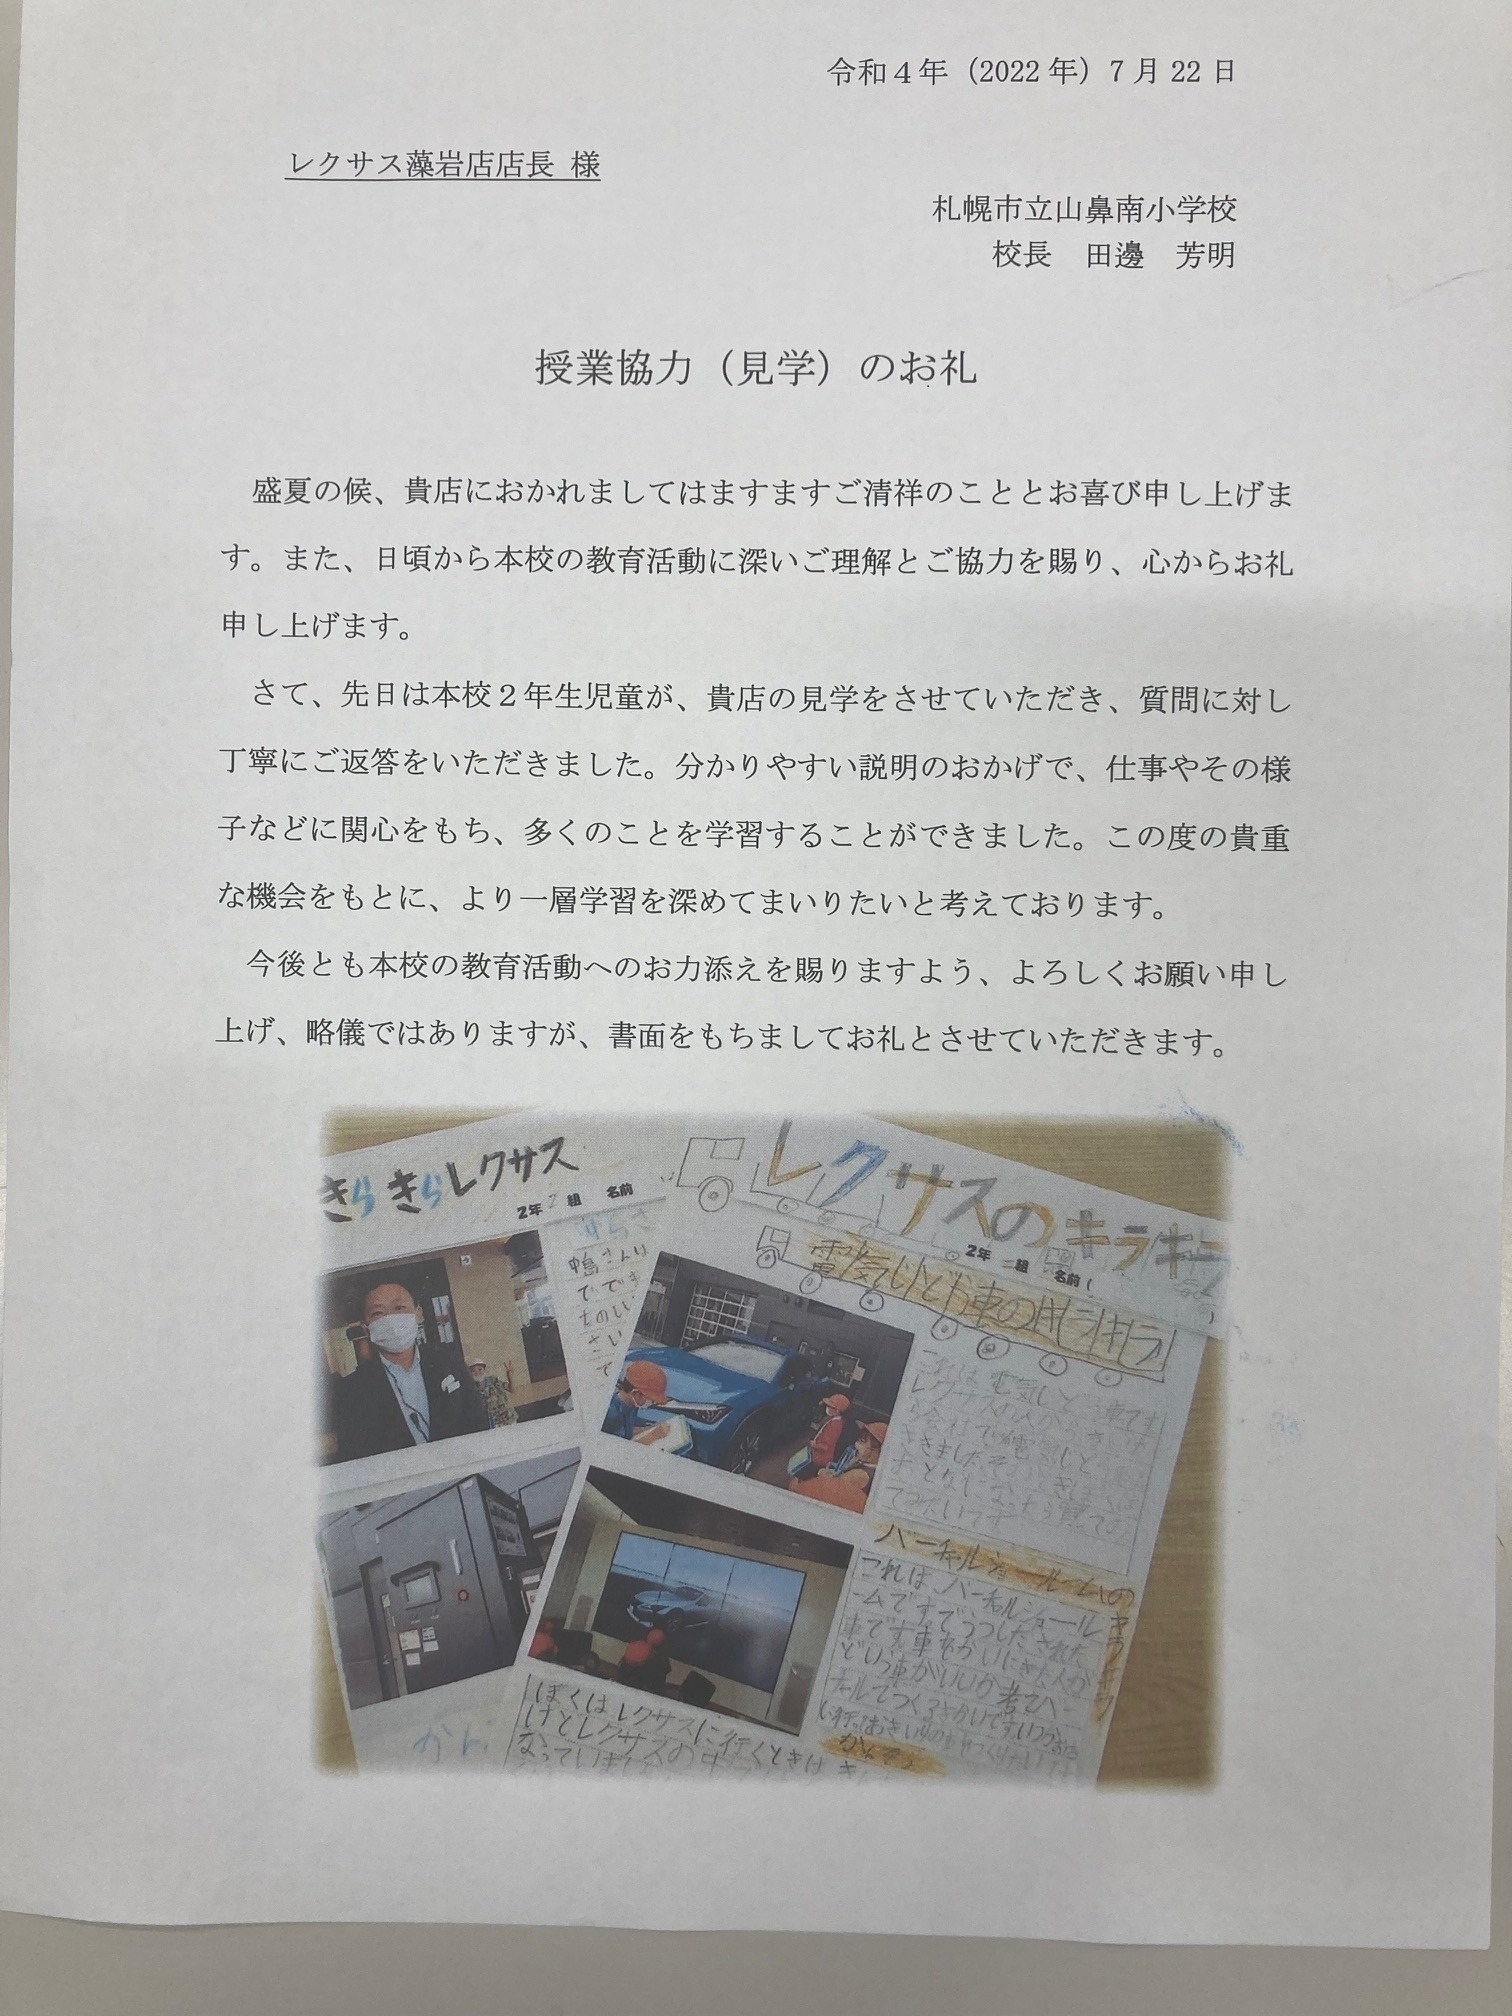 令和４年（2022 年）７月 22 日
レクサス藻岩店店長 様
札幌市立山鼻南小学校
校長　田邊　芳明
授業協力（見学）のお礼
盛夏の候、貴店におかれましてはますますご清祥のこととお喜び申し上げま
す。また、日頃から本校の教育活動に深いご理解とご協力を賜り、心からお礼
申し上げます。
さて、先日は本校２年生児童が、貴店の見学をさせていただき、質問に対し
丁寧にご返答をいただきました。分かりやすい説明のおかげで、仕事やその様
子などに関心をもち、多くのことを学習することができました。この度の貴重
な機会をもとに、より一層学習を深めてまいりたいと考えております。
今後とも本校の教育活動へのお力添えを賜りますよう、よろしくお願い申し
上げ、略儀ではありますが、書面をもちましてお礼とさせていただきます。
きらきらレクサス
2年 2 組 名前
レクサスのキラキラ
2年 二 組 名前（
バーチャルショールームの
これは、バーチャルショール
ぼくはレクサスに行くときは
けどレクサスの
かんそう